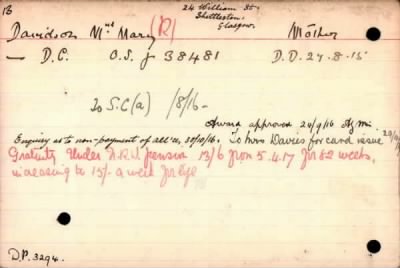 13
24 William St.
Shettleston,
Glasgow.
Davidson Mrs Mary (R) Mother
— D.C. O.S. J 38481 D.D. 27.8.15
To S.C(a) /8/16-
Award approved 24/9/16
Enquiry as to non-payment of all'ce, 30/10/16. To Mrs Davies for card issue
Gratuity Under N.R.U pension 13/6 from 5.4.17 for 82 weeks,
increasing to 15/- a week for life
D.P. 3294.